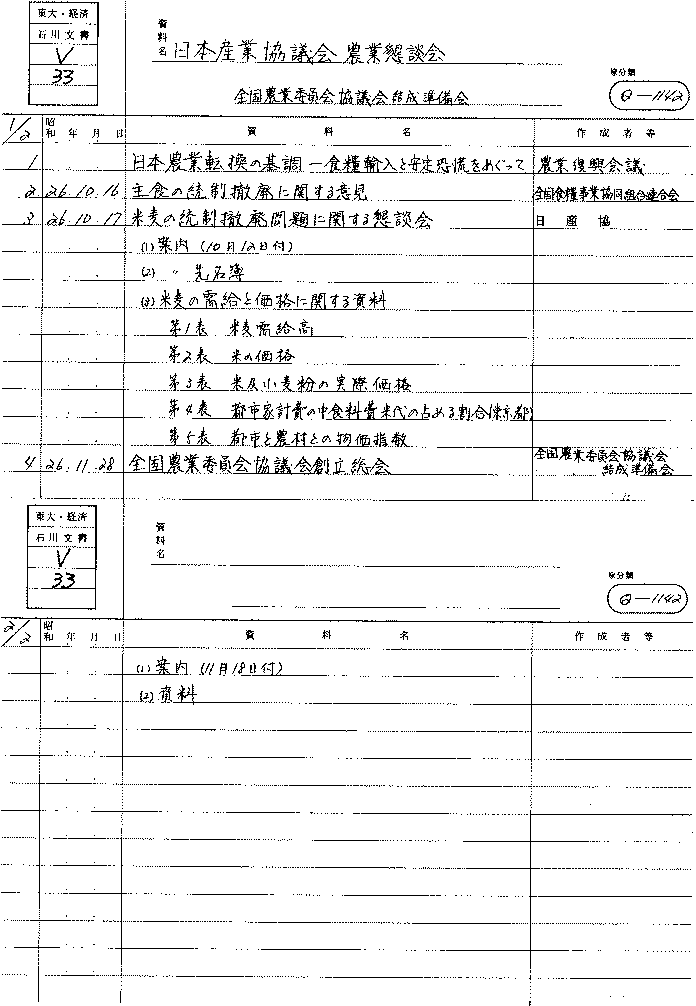 東大・経済
石川文書
V
33
資料名 日本産業協議会 農業懇談会
全国農業委員会協議会結成準備会
原分類
Q-1142
1/2 昭和 年 月 日 資料名 作成者等
1 日本農業転換の基調 ―食糧輸入と安定恐慌をめぐって 農業復興会議
2 26.10.16 主食の統制撤廃に関する意見 全国食糧事業協同組合連合会
3 26.10.17 米麦の統制撤廃問題に関する懇談会 日産協
(1) 案内 (10月12日付)
(2) 〃 先名簿
(3) 米麦の需給と価格に関する資料
第1表 米麦需給高
第2表 米の価格
第3表 米及小麦粉の実際価格
第4表 都市家計費の中食料費米代の占める割合(東京都)
第5表 都市と農村との物価指数
4 26.11.28 全国農業委員会協議会創立総会 全国農業委員会協議会結成準備会
東大・経済
石川文書
V
33
資料名
原分類
Q-1142
2/2 昭和 年 月 日 資料名 作成者等
(1) 案内 (11月18日付)
(2) 資料